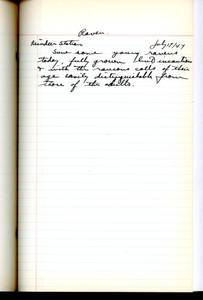 Raven
Reindeer Station July 17/64
Saw some young ravens
today, fully grown
& with the raucous calls of their
age easily distinguishable from
those of the adults.